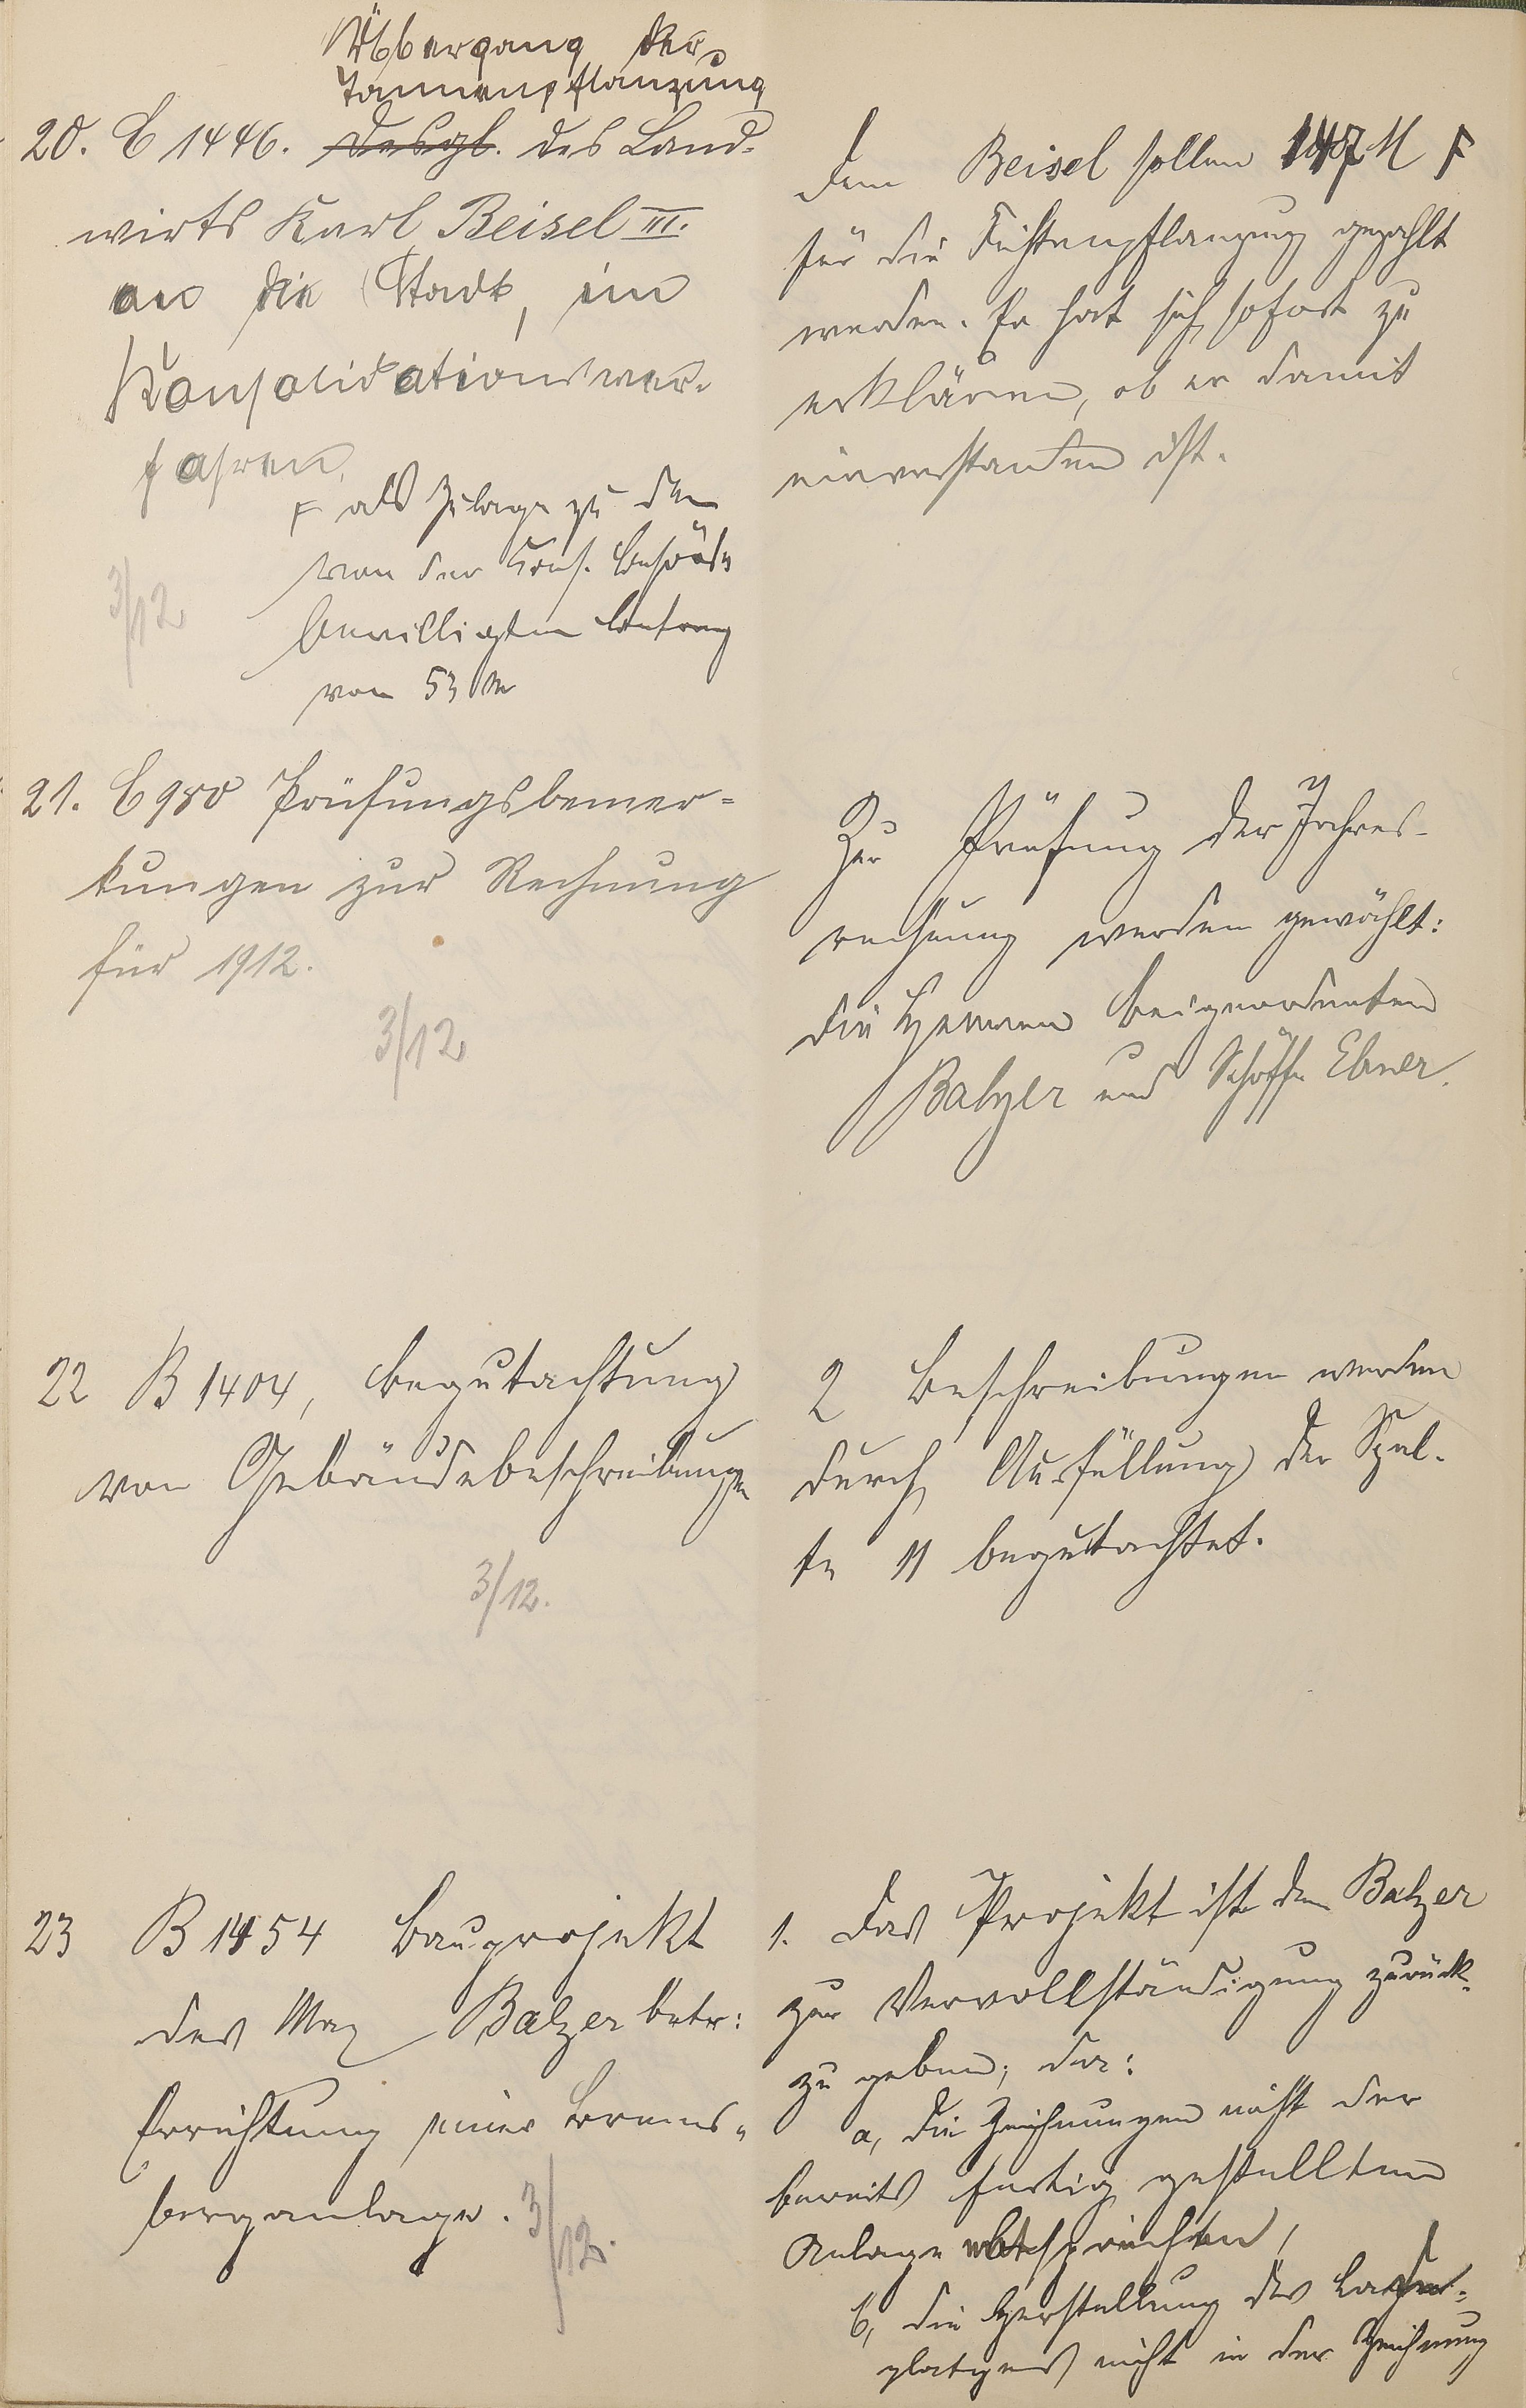 Übergang der
Tannenpflanzung
20. C 1446. Desgl. des Land-
wirts Karl Beisel III.
an die Stadt, im
Konsolidationsver-
fahren.
F als Zulage zu dem
von der Kons. Behörde
bewilligten Betrag
von 53 M
3/12
Dem Beisel sollen 147 M F
für die Fichtenpflanzung gezahlt
werden. Er hat sich sofort zu
erklären, ob er damit
einverstanden ist.
21. C 980 Prüfungsbemer-
kungen zur Rechnung
für 1912.
3/12
Zur Prüfung der Jahres-
rechnung werden gewählt:
die Herren Beigeordneten
Balzer und Schöffe Ebner.
22 B 1404, Begutachtung
von Gebäudebeschreibungen
3/12.
2 Beschreibungen werden
durch Ausfüllung der Spal-
te 11 begutachtet.
23 B 1454 Bauprojekt
des Max Balzer betr:
Errichtung einer Brems-
berganlage.
3/12.
1. Das Projekt ist dem Balzer
zur Vervollständigung zurück-
zu geben; da:
a, die Zeichnungen nicht der
bereits fertig gestellten
Anlage entsprechen,
b, die Herstellung des Lager-
platzes nicht in der Zeichnung